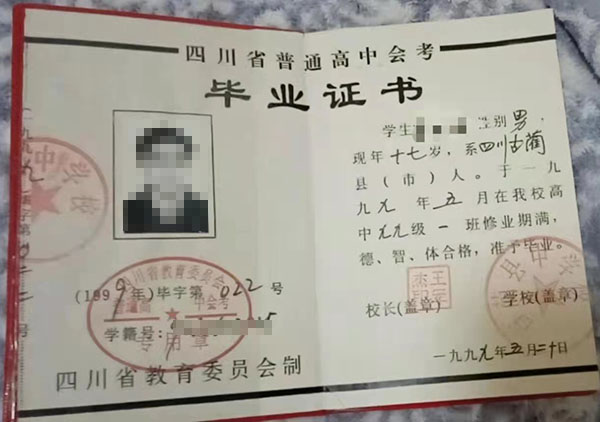 四川省普通高中会考
毕业证书
学生 性别男，
现年十七岁，系四川古蔺
县（市）人。于一九
九九年五月在我校高
中九九级一班修业期满，
德、智、体合格，准予毕业。
校长(盖章) 学校(盖章)
一九九九年五月二十日
四川省教育委员会
普通高中会考
专用章
(1999年)毕字第022号
学籍号:
四川省教育委员会制